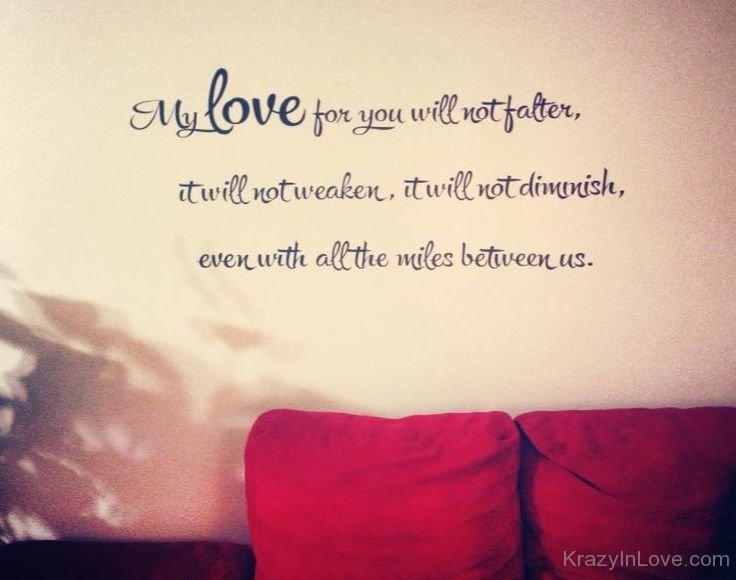 My love for you will not falter,
it will not weaken, it will not diminish,
even with all the miles between us.
KrazyInLove.com